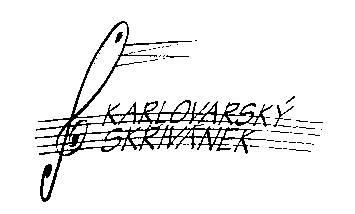 KARLOVARSKÝ
SKŘIVÁNEK